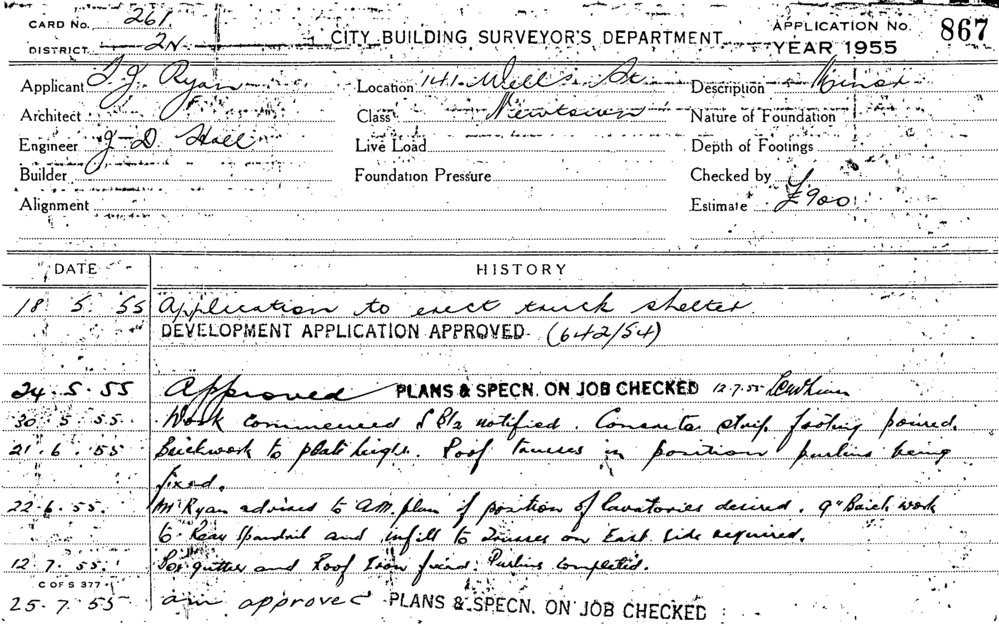 CARD No. 261
DISTRICT 2N
CITY BUILDING SURVEYOR'S DEPARTMENT
APPLICATION No. 867
YEAR 1955
Applicant T.J. Ryan
Location 141 Wells St
Description Minor
Architect
Class Newtown
Nature of Foundation
Engineer J D Hall
Live Load
Depth of Footings
Builder
Foundation Pressure
Checked by
Alignment
Estimate £900
DATE HISTORY
18 5. 55 Application to erect truck shelter.
DEVELOPMENT APPLICATION APPROVED (642/54)
24.5.55 Approved PLANS & SPECN. ON JOB CHECKED 12.7.55
30.5.55. Work commenced notified. Concrete strip footing poured.
21.6.55 Brickwork to plate height. Roof trusses in position purlins being
fixed.
22.6.55. Mr Ryan advised to am. plan if position of lavatories desired. 9" Brick work
to Rear Spandril and infill to Trusses on East side required.
12.7.55. Box gutter and Roof Iron fixed. Purlins completed.
C OF S 377
25.7.55 am approved PLANS & SPECN. ON JOB CHECKED